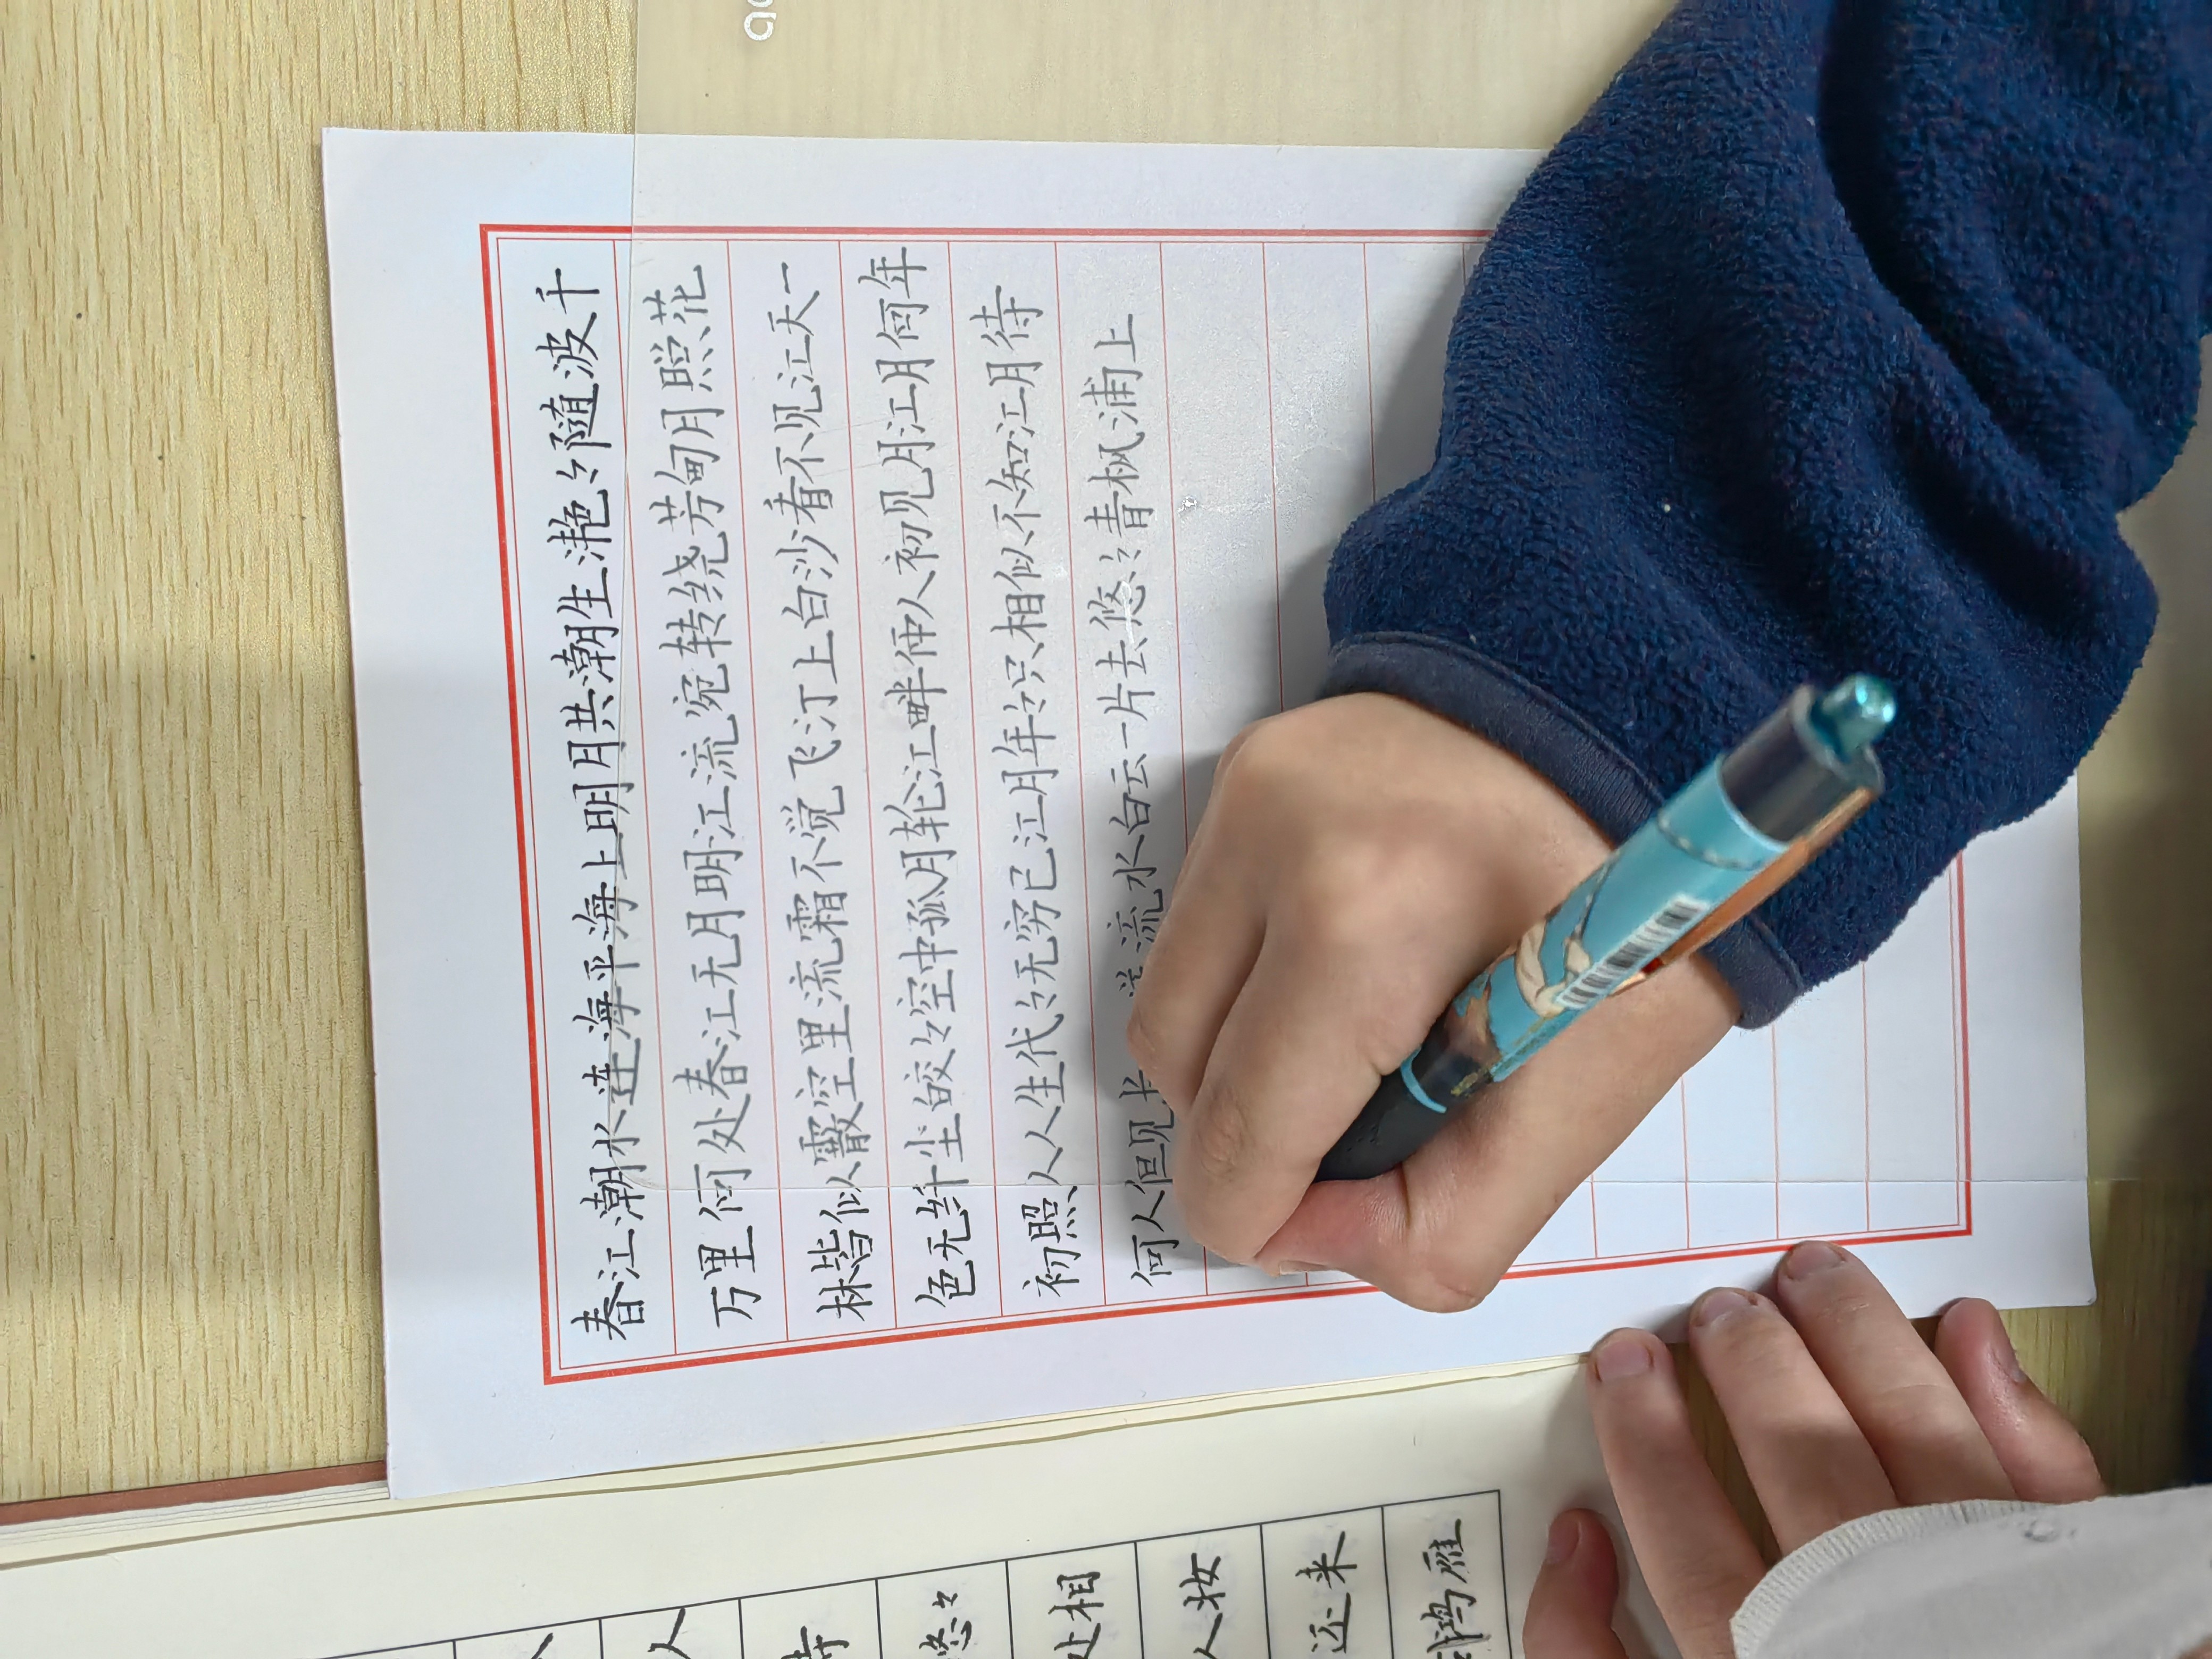 春江潮水连海平海上明月共潮生滟々随波千
万里何处春江无月明江流宛转绕芳甸月照花
林皆似霰空里流霜不觉飞汀上白沙看不见江天一
色无纤尘皎々空中孤月轮江畔何人初见月江月何年
初照人人生代々无穷已江月年々只相似不知江月待
何人但见 流水白云一片去悠々青枫浦上
人
悠々
处相
人妆
还来
鸿雁